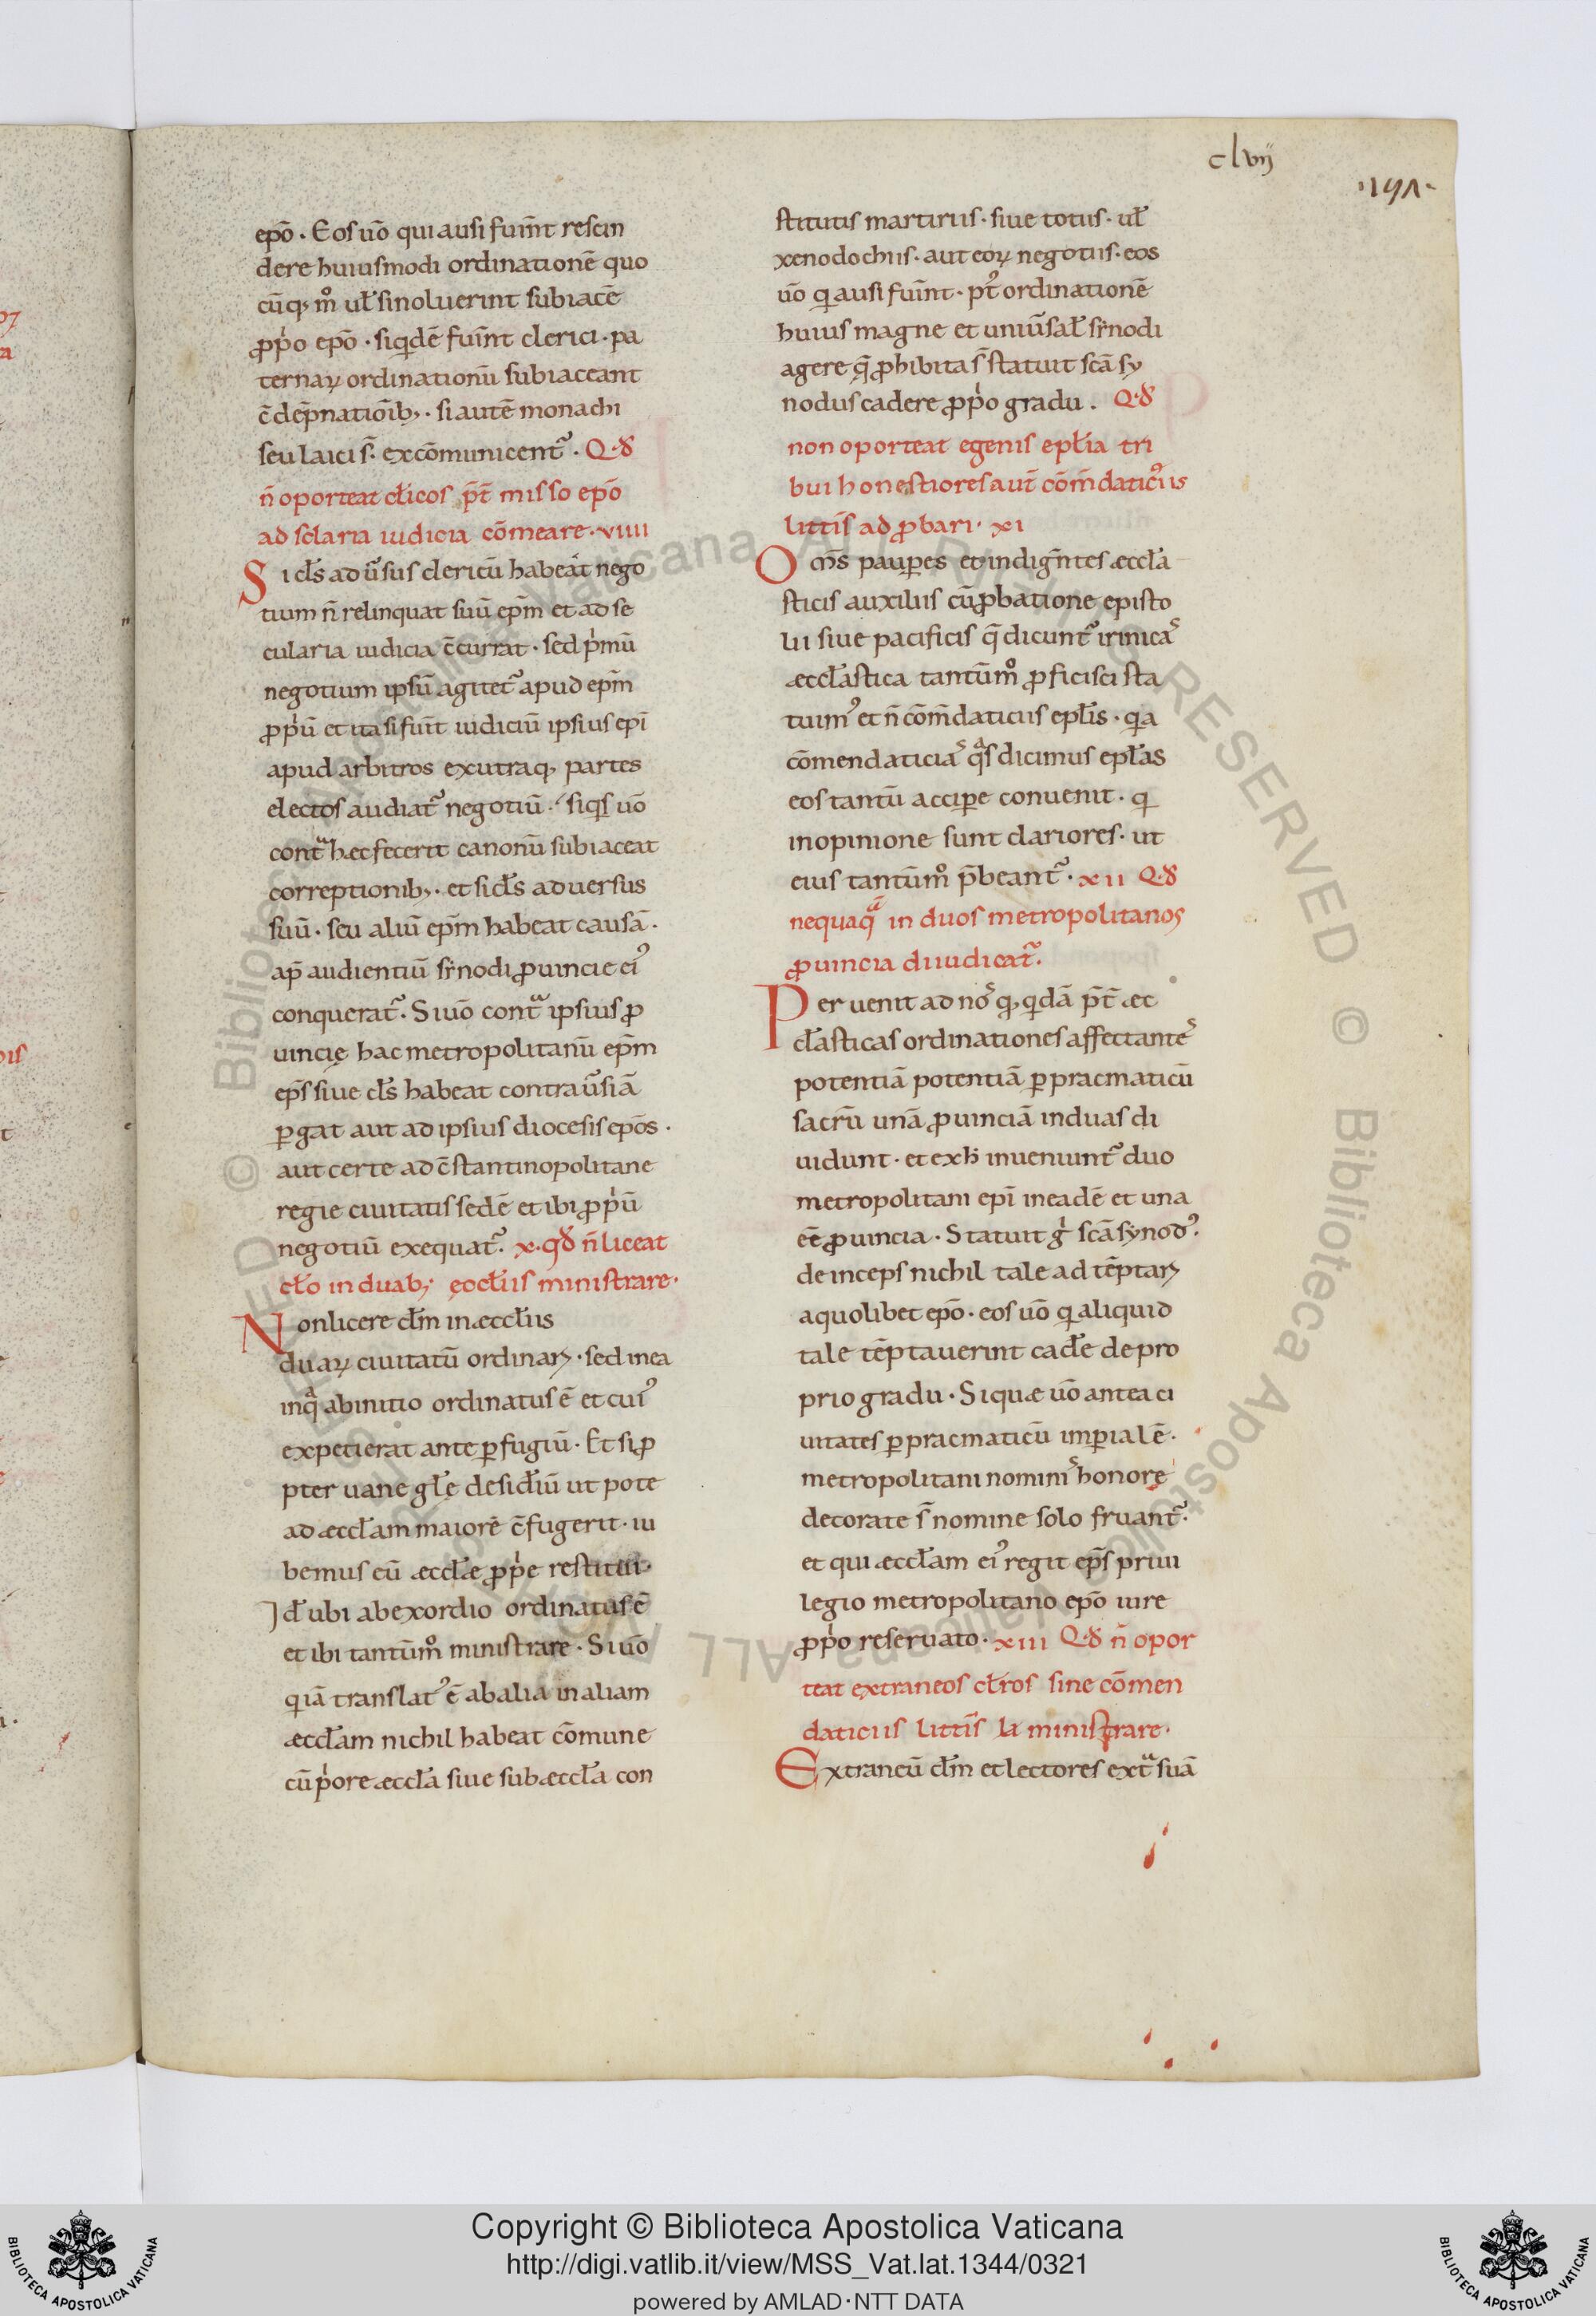 clvij
·157·
epō · Eos uō qui ausi fuīnt rescin
dere huiusmodi ordinationē quo
cūq; m̊ uł si noluerint subiacē
ꝓpͥo epō · siqͥdē fuīnt clerici · pa
ternaꝝ ordinationū subiaceant
c̄dēpnatiōib; · si autē monachi
seu laici s̄ · excōmunicentᷣ · Qđ
n̄ oporteat cłicos p̄t̄ misso epō
ad sclaria iudicia cōmeare · viiii
Si cłs aduūsus clericū habeat nego
tium n̄ relinquat suū ep̄m et ad se
cularia iudicia c̄currat · sed pͥmū
negotium ipsū agitetᷣ apud ep̄m
ꝓpͥū et ita si fuīt iudiciū ipsius epī
apud arbitros ex utraq; partes
electos audiatᷣ negotiū · siqͥs uō
contᷓ hæc fecerit canonū subiaceat
correptionib; · et si cłs aduersus
suū · seu aliū ep̄m habeat causā ·
ap̄ audientiū sīnodi ꝓuincie eiꝰ
conqueratᷣ · Si uō contᷓ ipsius ꝓ
uincię hac metropolitanū ep̄m
ep̄s siue cłs habeat contrauūsiā
ꝑgat aut ad ipsius diocesis epōs ·
aut certe ad c̄stantinopolitane
regie ciuitatis sedē et ibi ꝓpͥū
negotiū exequatᷣ · x · qđ n̄ liceat
cło in duab; ęccłiis ministrare ·
Non licere cłm in æccłiis
duaꝝ ciuitatū ordinaꝝ · sed in ea
in qᷓ ab initio ordinatus ē et cuiꝰ
expetierat ante ꝑfugiū · Et si ꝓ
pter uane głę desidīū ut pote
ad æccłam maiorē c̄fugerit · iu
bemus eū æccłæ ꝓpͥe restitui ·
Id ubi ab exordio ordinatus ē
et ibi tantūm̊ ministrare · Si uō
qͥ iā translatꝰ ē ab alia in aliam
æccłam nichil habeat cōmune
cū pͥore æccła siue sub æccła con
stitutis martiriis · siue totiis · uł
xenodochiis · aut eoꝝ negotiis · eos
uō qͥ ausi fuīnt · ptꝰ ordinationē
huius magne et uniūsał sīnodi
agere q̄ ꝓhibita s̄ statuit scā sy
nodus cadere ꝓpͥo gradu · Qđ
non oporteat egenis epłia tri
bui honestiores aut̄ cōm̄daticiis
littīs adꝓbari · xi
Om̄s pauꝑes et indigntes æccła
sticis auxiliis cū ꝓbatione episto
lii siue pacificis q̄ dicuntᷣ irinicas
æccłastica tantūm̊ ꝓficisci sta
tuimꝰ et n̄ cōm̄daticiis epłis · qͥa
cōmendaticias qͣs dicimus epłas
eos tantū acciꝑe conuenit · qͥ
in opinione sunt clariores · ut
eius tantūm̊ p̄beantᷣ · xii Qđ
nequaqᷓ in duos metropolitanos
ꝓuincia diiudicatᷣ ·
Peruenit ad nos q; qͥdā p̄t̄ æc
cłasticas ordinationes affectantes
potentiā potentiā ꝑ pracmaticū
sacrū unā ꝓuinciā in duas di
uidunt · et ex h̄ inueniuntᷣ duo
metropolitani epī in eadē et una
eē ꝓuincia · Statuit gͥ scā synodꝰ ·
deinceps nichil tale adtēptaꝝ
a quolibet epō · eos uō qͥ aliquid
tale tēptauerint cadēe de pro
prio gradu · Si quæ uō antea ci
uitates ꝑ pracmaticū imꝑialē ·
metropolitani nominis honore
decorate s̄ nomine solo fruantᷣ ·
et qui æccłam eiꝰ regit ep̄s priui
legio metropolitano epō iure
ꝓpͥo reseruato · xiii Qđ n̄ opor
teat extraneos cłros sine cōmen
daticiis littīs la ministrare ·
Extraneū cłm et lectores extᷓ suā
Copyright © Biblioteca Apostolica Vaticana
http://digi.vatlib.it/view/MSS_Vat.lat.1344/0321
powered by AMLAD·NTT DATA
BIBLIOTECA APOSTOLICA VATICANA
BIBLIOTECA APOSTOLICA VATICANA